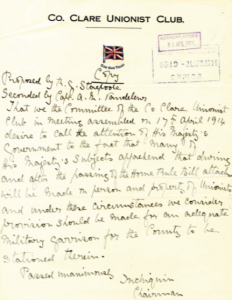 CO. CLARE UNIONIST CLUB.
Copy
Proposed by R. J. Stacpoole
Seconded by Capt. A. L. Vandeleur
That we the Committee of the Co Clare Unionist
Club in Meeting assembled on 17th April 1914
desire to call the attention of His Majesty's
Government to the fact that Many of
His Majesty's Subjects apprehend that during
and after the passing of the Home Rule Bill attacks
will be made on person and property of Unionists
and under these circumstances we consider
provision should be made for an adequate
Military Garrison for the County to be
stationed therein.
Passed unanimously
Inchiquin
Chairman